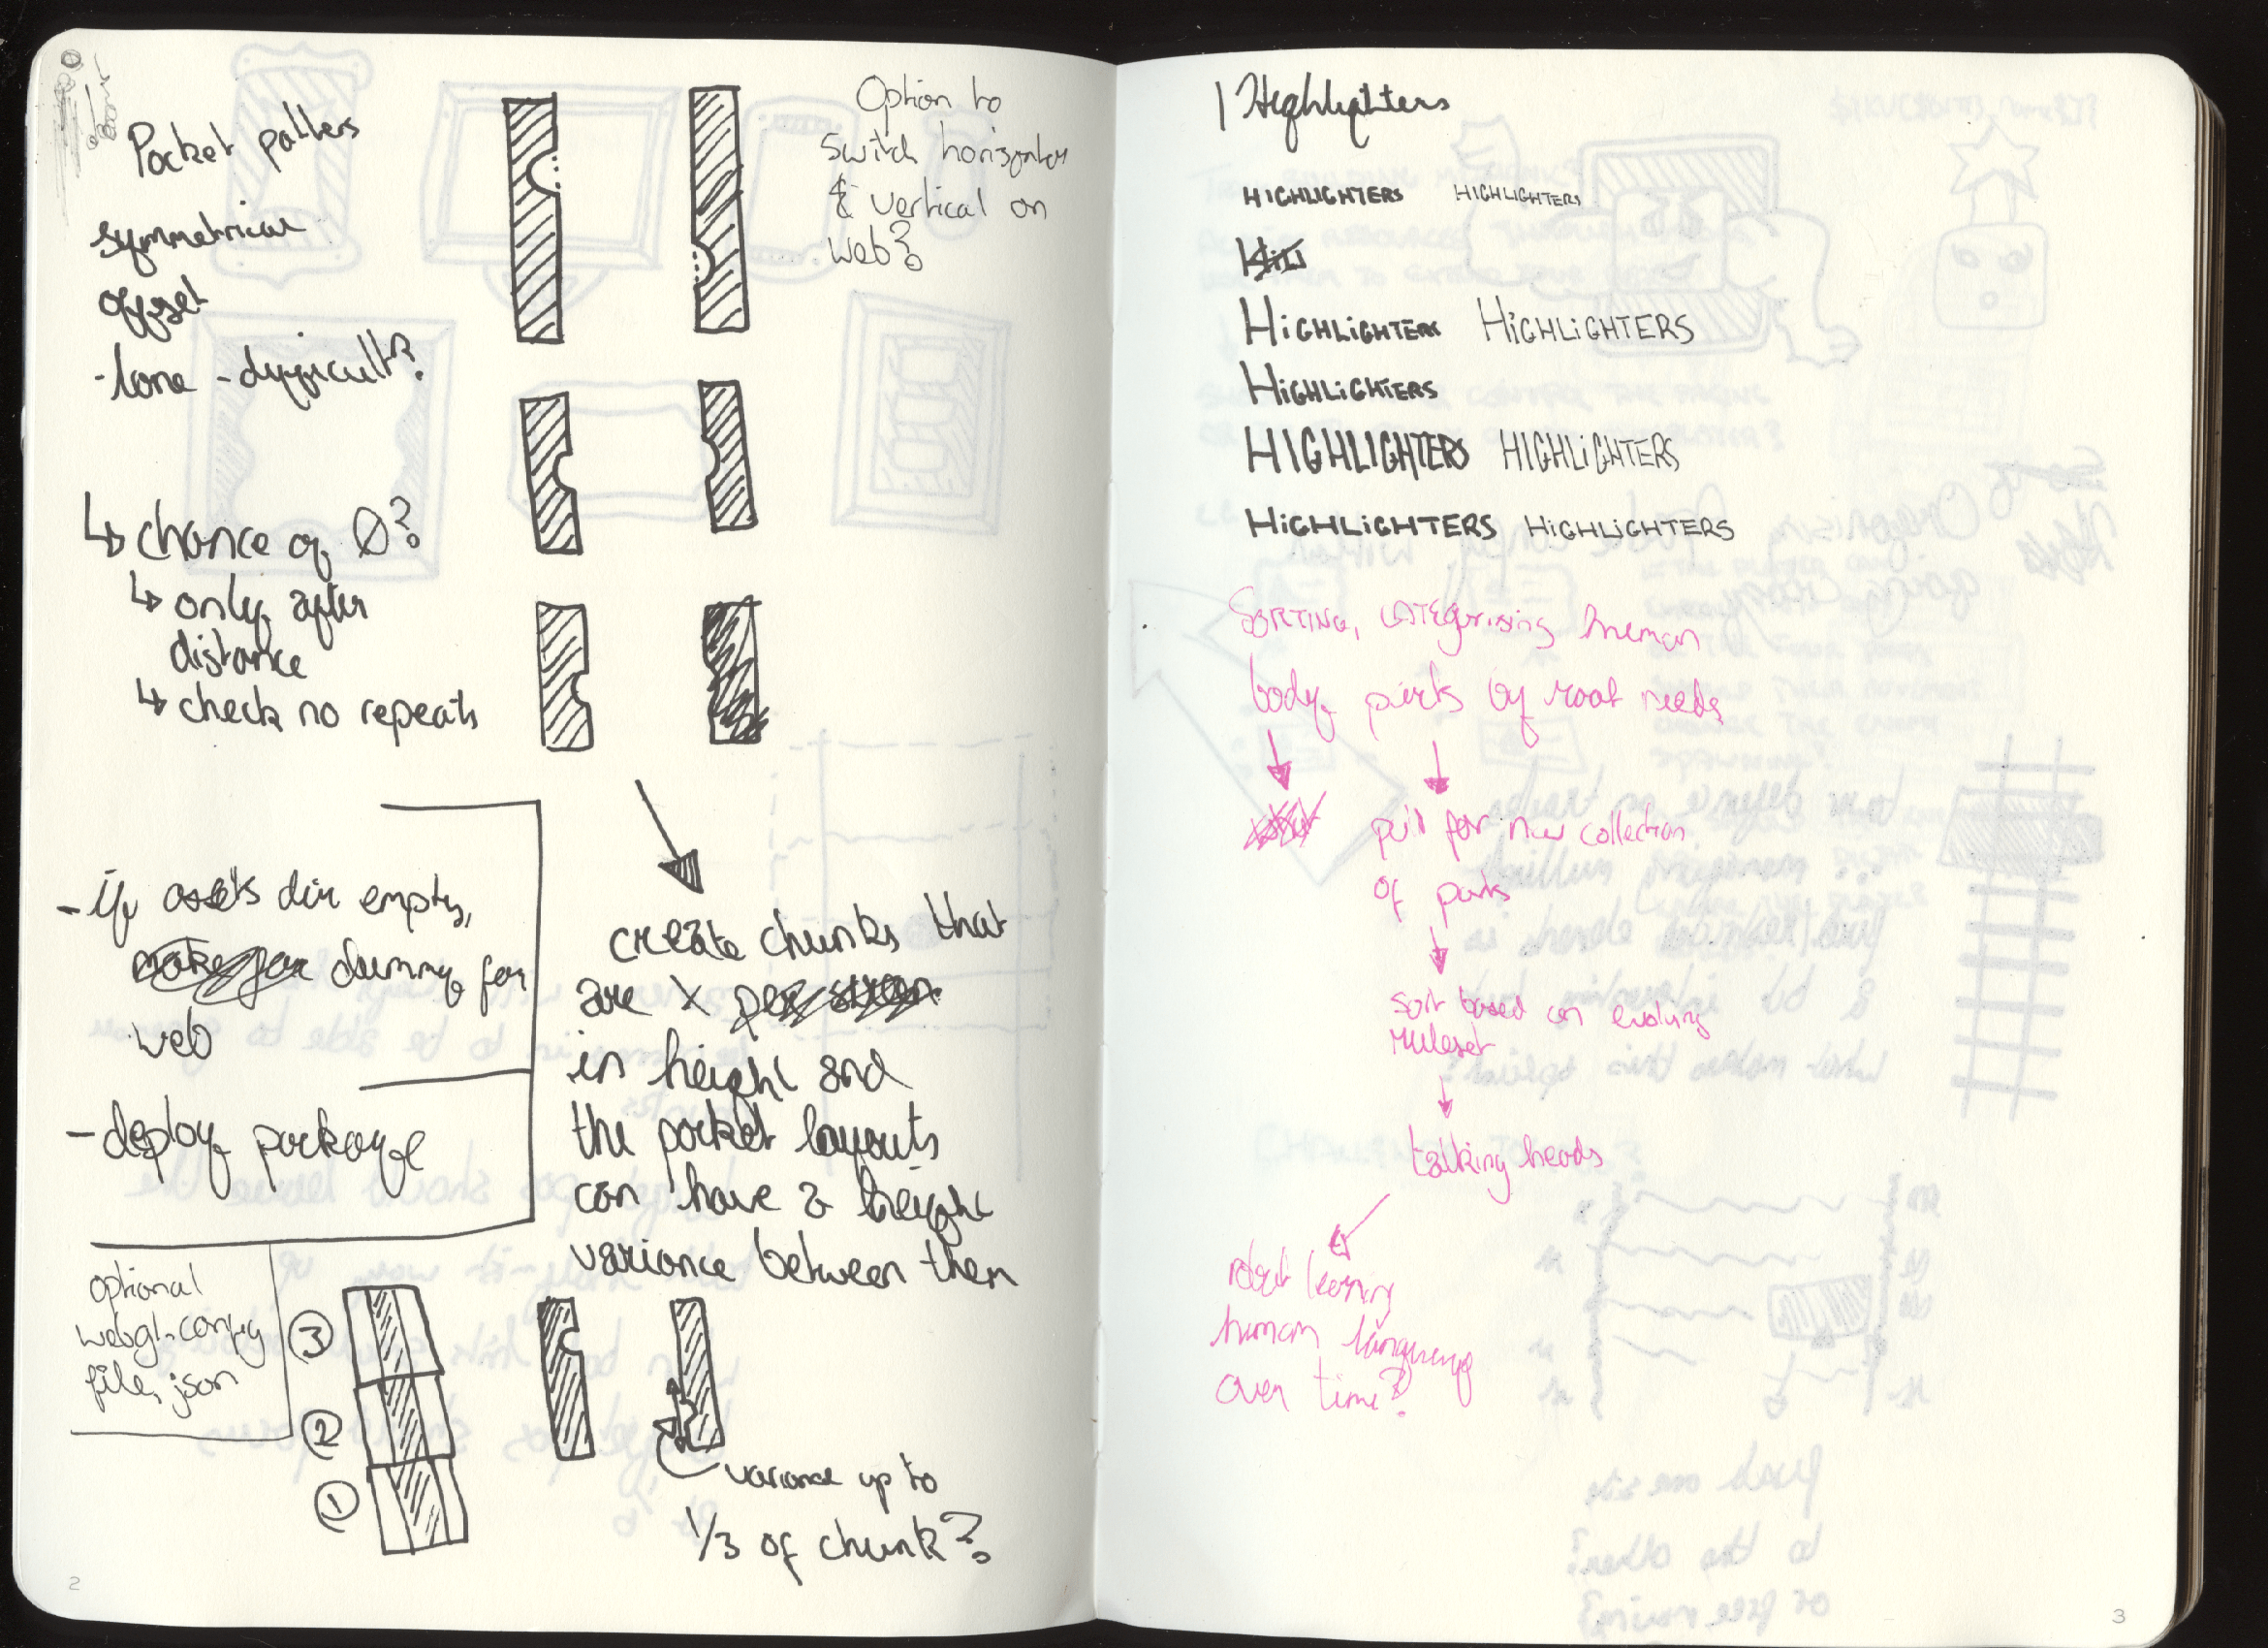 Pocket patters
symmetrical
offset
-lone - difficult?
↳ chance of Ø?
↳ only after
distance
↳ check no repeats
Option to
switch horizontal
& vertical on
web?
- if assets dir empty,
dummy for
web
- deploy package
create chunks that
are X
in height and
the pocket layouts
can have a height
variance between them
optional
webgl-config
file, json
③
②
①
variance up to
1/3 of chunk?
2
Highlighters
HIGHLIGHTERS HIGHLIGHTERS
HiGHLiGHTERS HiGHLiGHTERS
HiGHLiGHTERS
HIGHLIGHTERS HIGHLiGHTERS
HiGHLiGHTERS HiGHLiGHTERS
SORTING, categorising human
body parts by root needs
pull for new collection
of parts
sort based on evolving
ruleset
talking heads
robot learning
human language
over time?
3